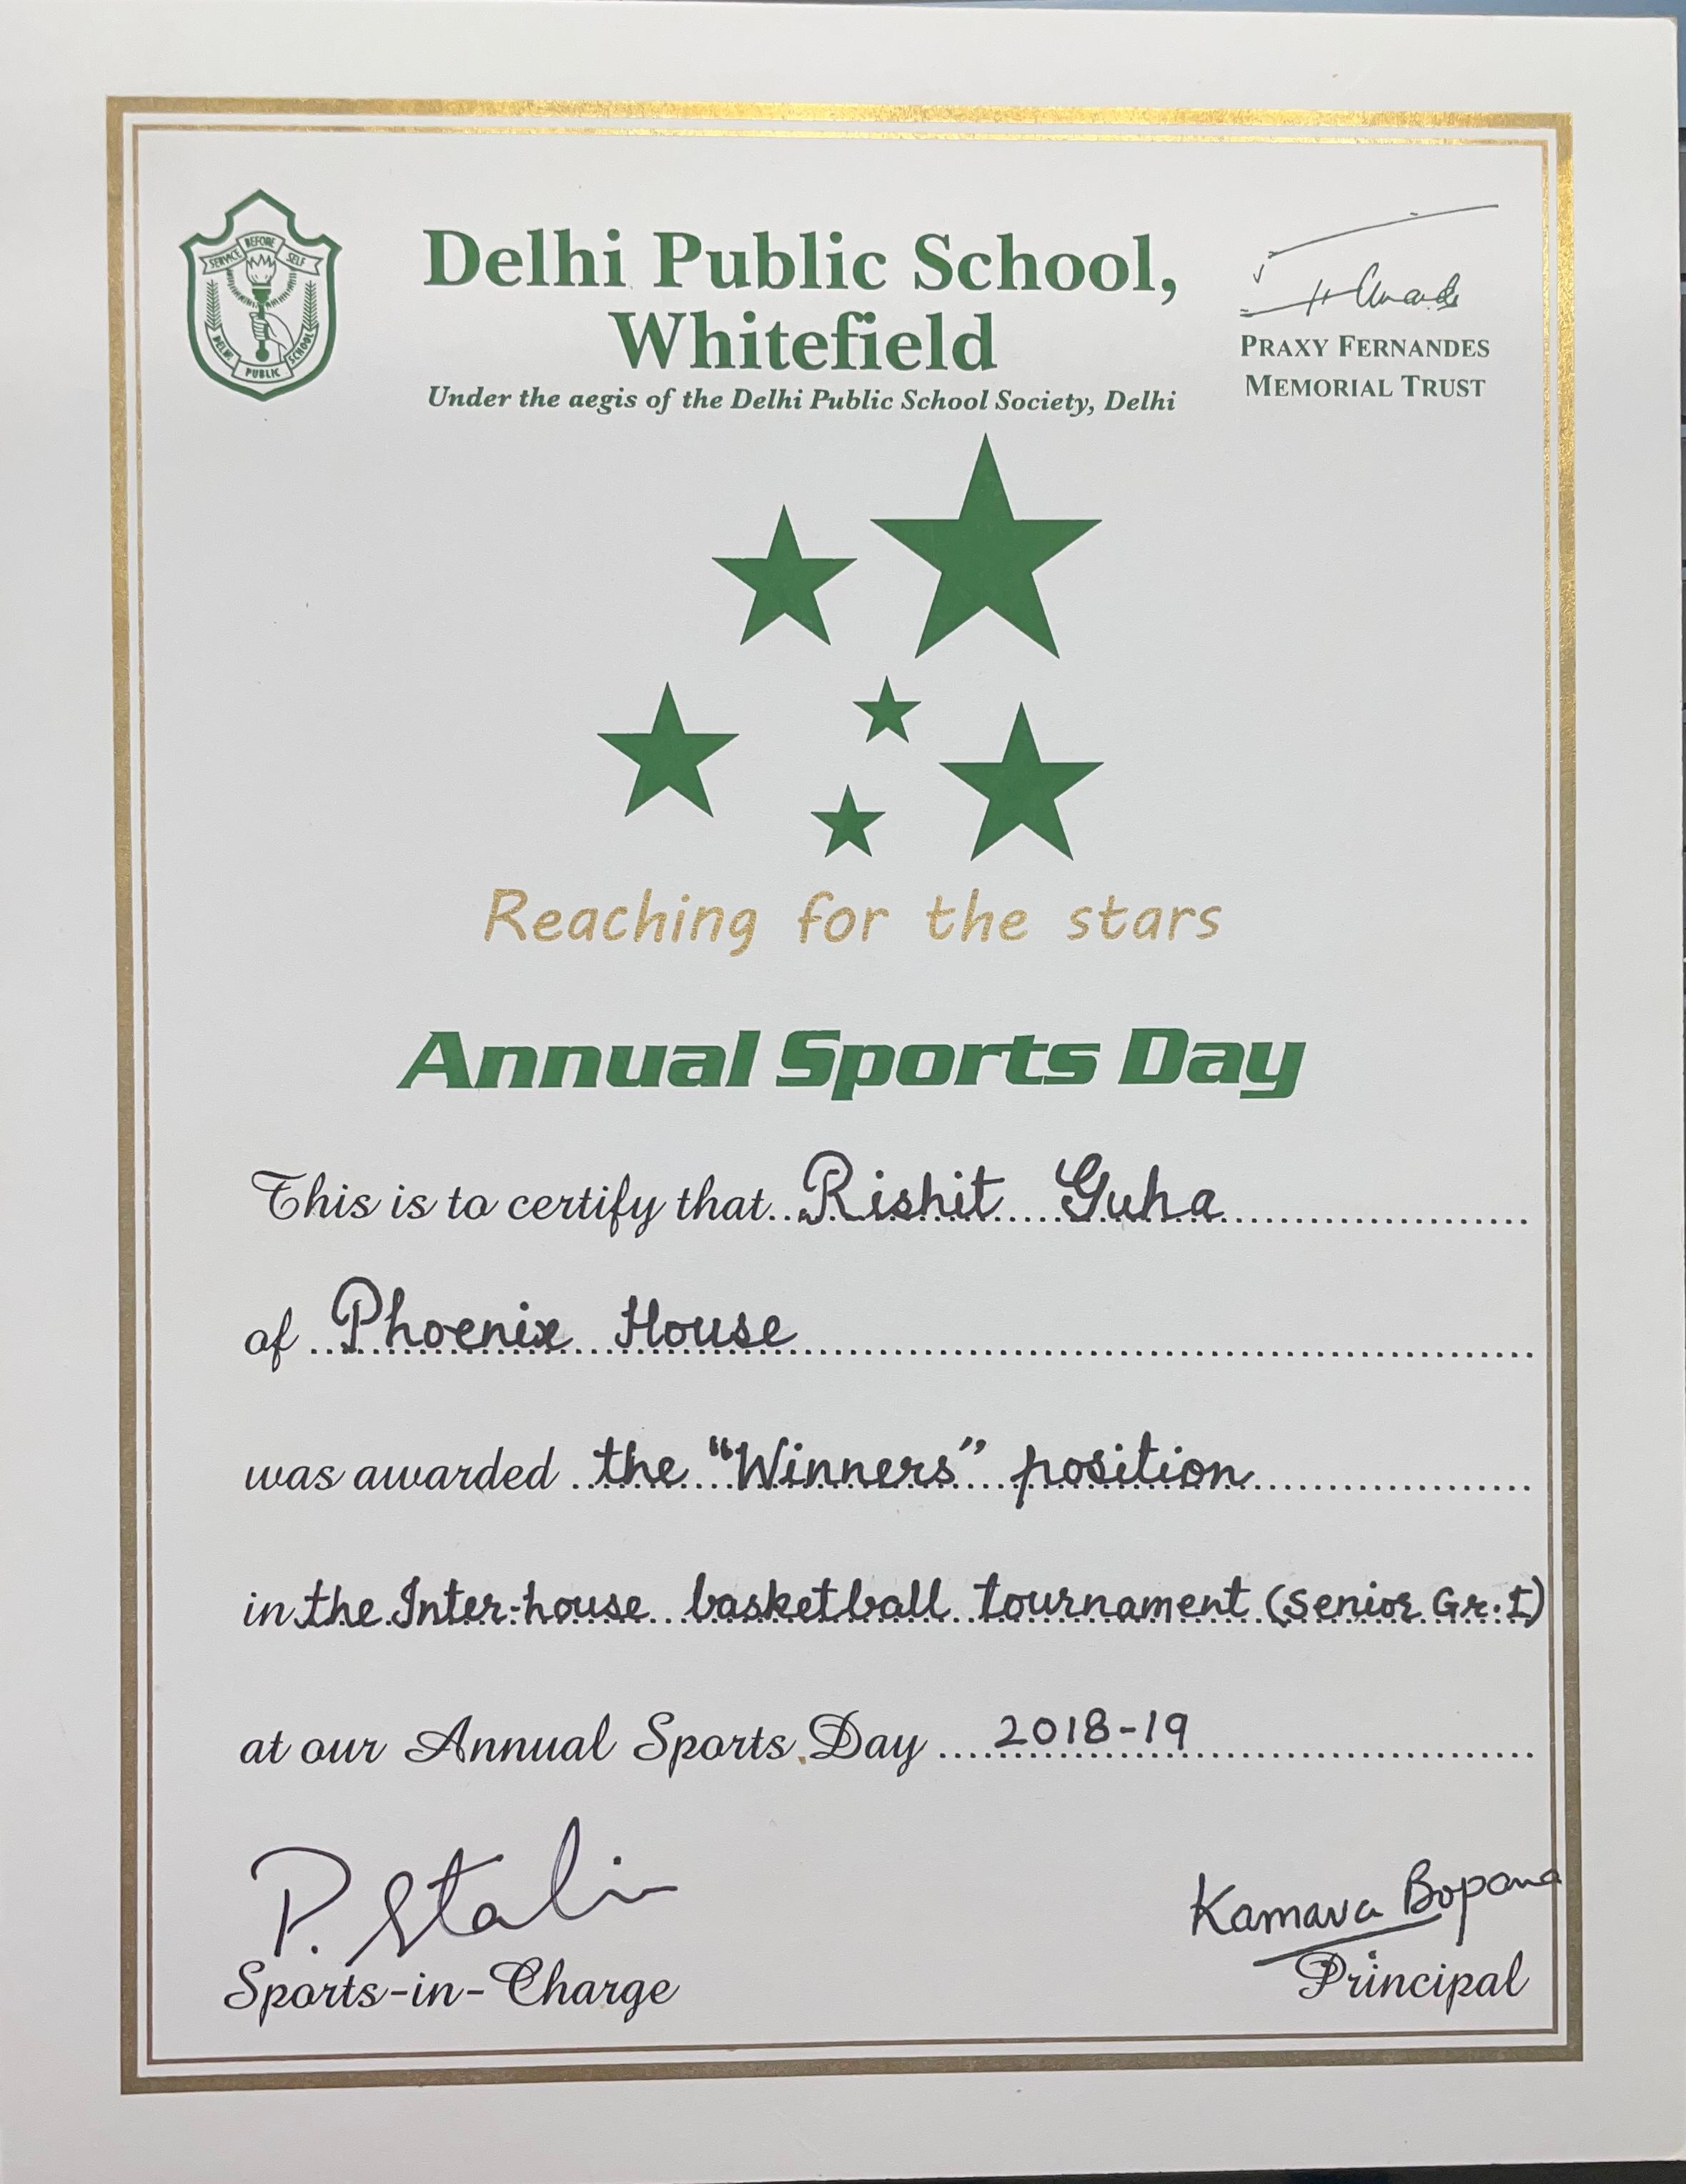 SERVICE BEFORE SELF
DELHI PUBLIC SCHOOL
Delhi Public School,
Whitefield
Under the aegis of the Delhi Public School Society, Delhi
PRAXY FERNANDES
MEMORIAL TRUST
Reaching for the stars
Annual Sports Day
This is to certify that Rishit Guha
of Phoenix House
was awarded the "Winners" position
in the Inter-house basketball tournament (Senior Gr. I)
at our Annual Sports Day 2018-19
P. Stalin
Sports-in-Charge
Kamava Bopana
Principal